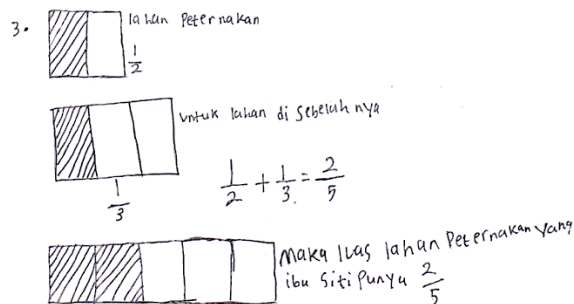 3.
lahan Peternakan
1/2
untuk lahan di sebelah nya
1/3
1/2 + 1/3 = 2/5
Maka luas lahan Peternakan yang
ibu Siti Punya 2/5